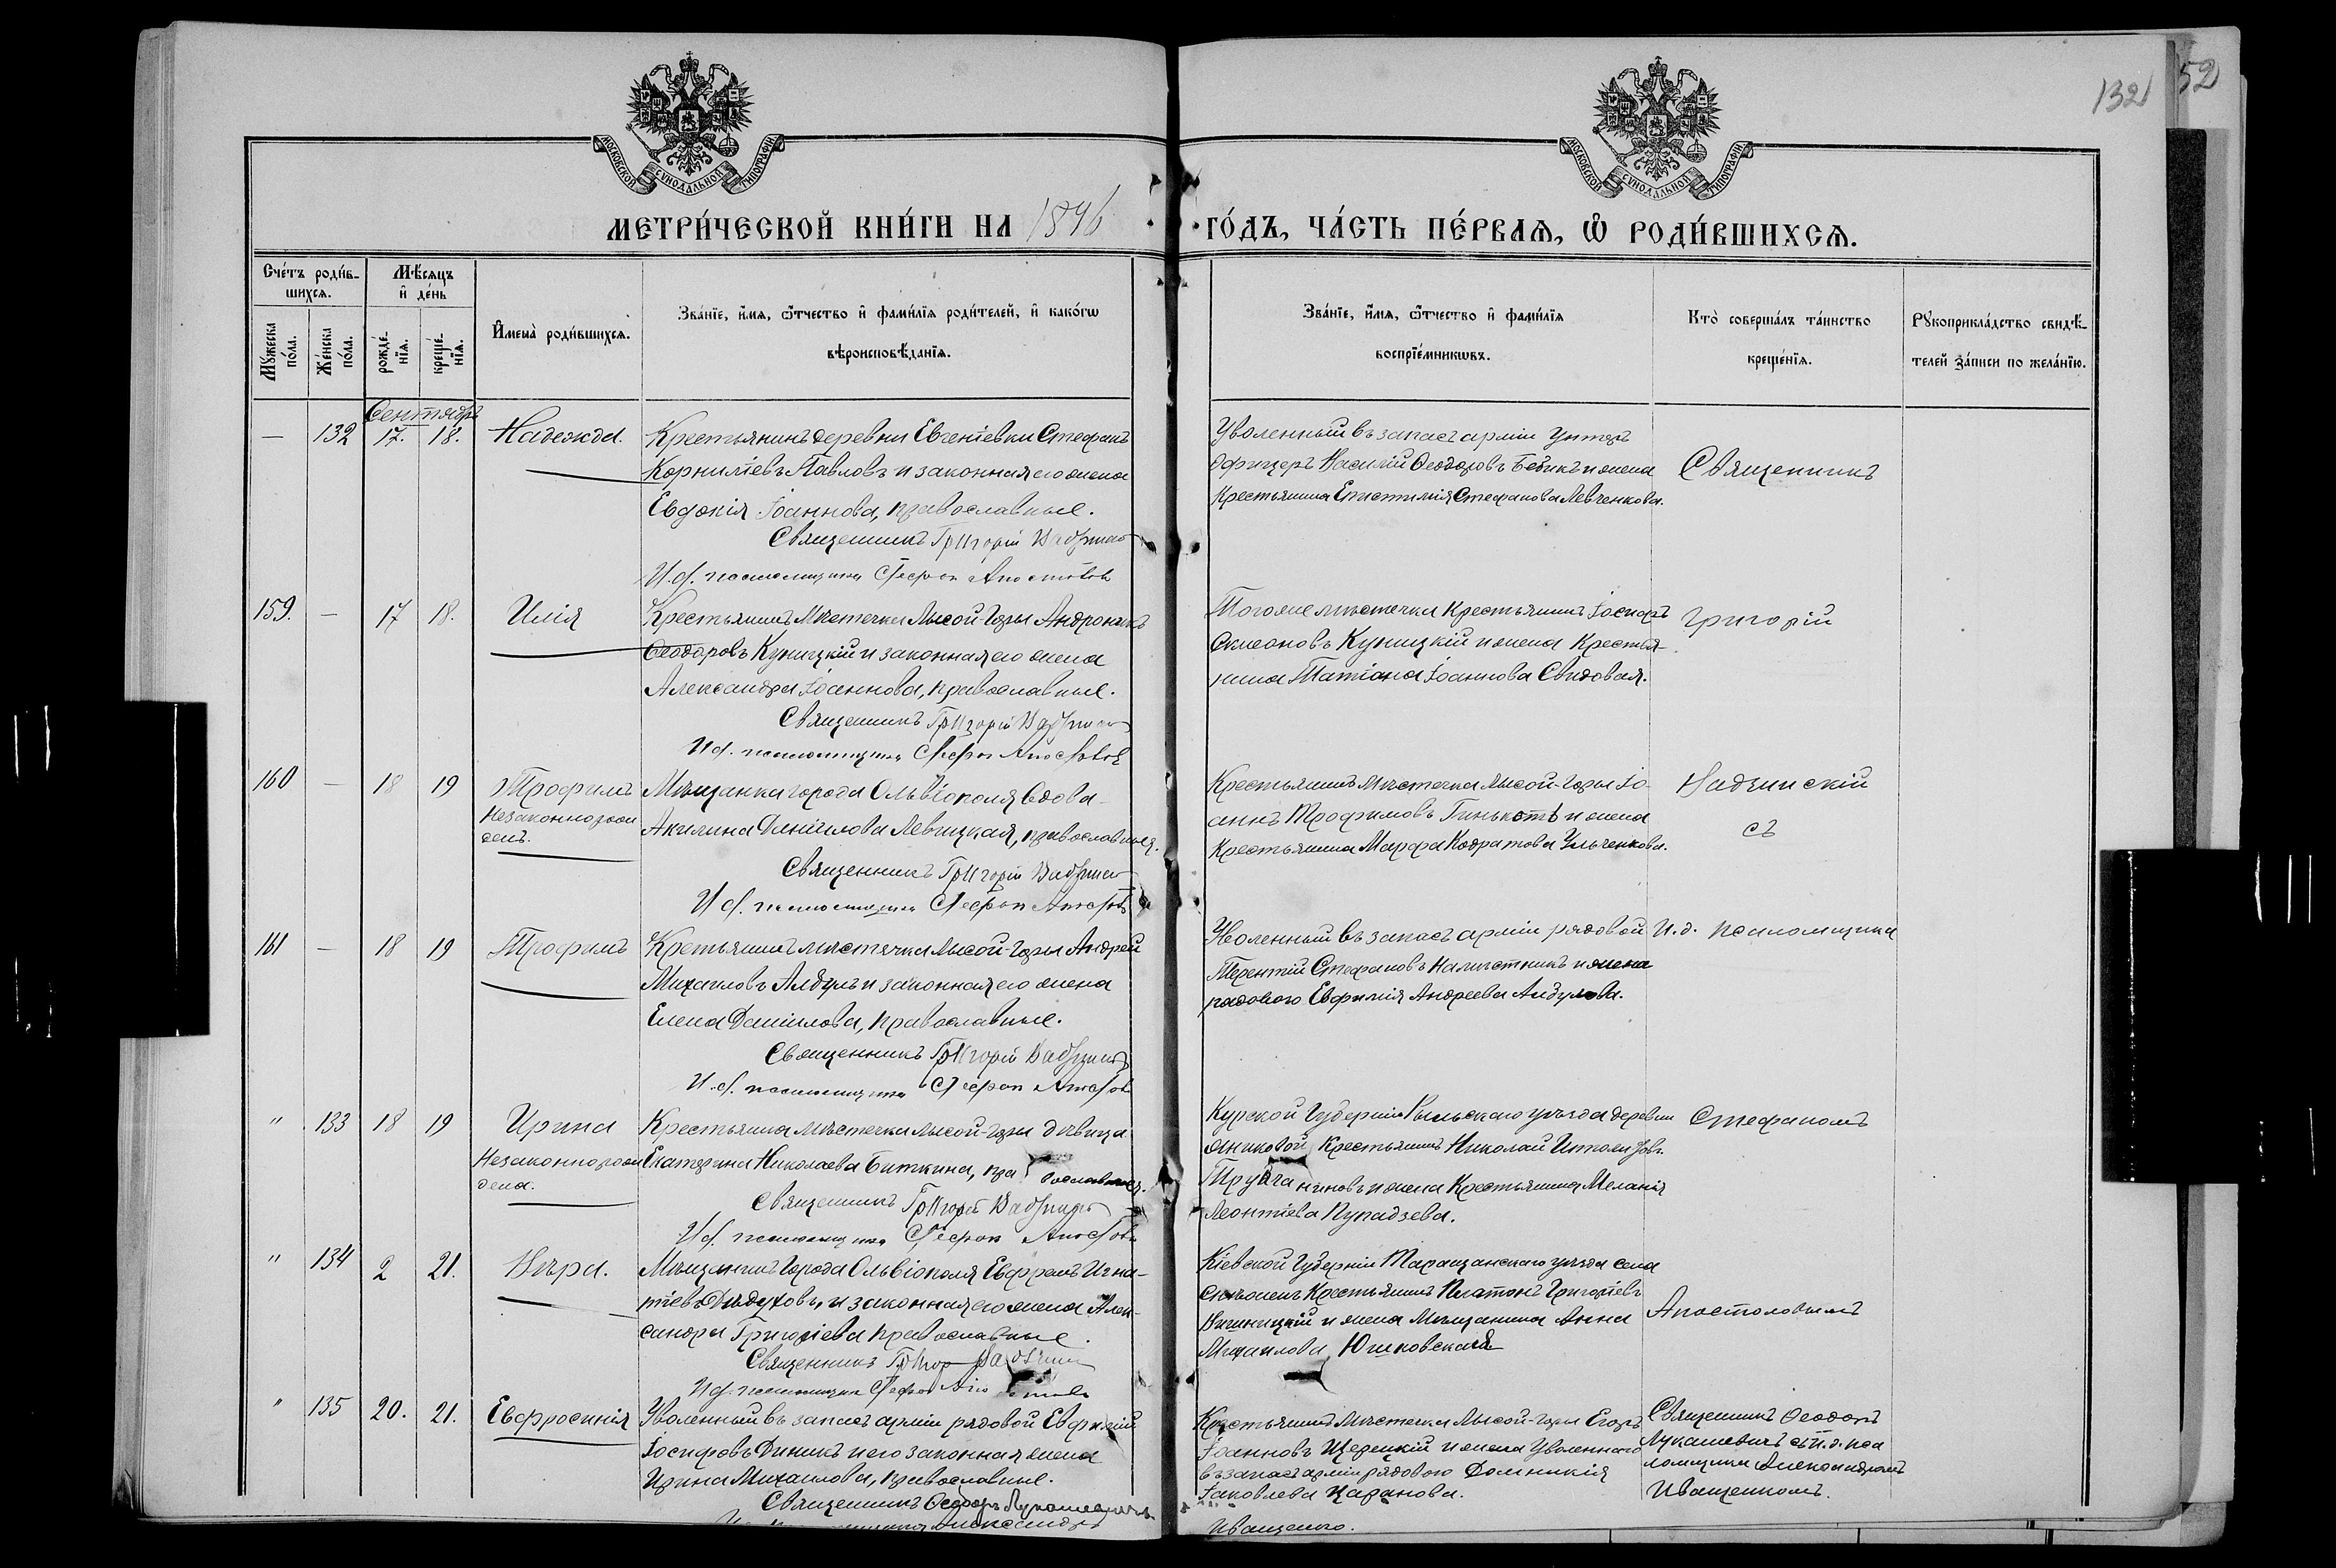 132
52
МОСКОВСКОЙ СѴНОДАЛЬНОЙ ТИПОГРАФІИ
МОСКОВСКОЙ СѴНОДАЛЬНОЙ ТИПОГРАФІИ
МЕТРИ́ЧЕСКОЙ КНИ́ГИ НА 1896
ГО́ДЪ, ЧА́СТЬ ПЕ́РВАЯ, Ѽ РОДИ́ВШИХСЯ.
Сче́тъ роди́в-
шихся.
Мѣ́сяцъ
и҆ де́нь
Мꙋ́жеска
по́ла.
Же́нска
по́ла.
рожде́-
нїя.
креще́-
нїя.
И҆мена̀ роди́вшихся.
Зва́нїе, и҆́мя, ѻ҆́тчество и҆ фами́лїя роди́телей, и҆ како́гѡ
вѣроисповѣ́данїя.
Зва́нїе, и҆́мя, ѻ҆́тчество и҆ фами́лїя
воспрїе́мникѡвъ.
Кто̀ соверша́лъ та́инство
креще́нїя.
Рꙋкоприкла́дство свидѣ́-
телей за́писи по жела́нїю.
Сентябрь
— 132 17. 18. Надежда.
Крестьянинъ деревни Евгеніевки Стефанъ
Корниліевъ Павловъ и законная его жена
Евдокія Іоаннова, православные.
Священникъ Григорій
И.д. псаломщика Стефан Апостолов
Уволенный въ запасъ арміи Унтеръ
Офицеръ Василій Ѳеодоровъ Бабикъ и жена
Крестьянина Епистимія Стефанова Левченкова.
Священникъ
159. — 17 18. Илія
Крестьянинъ Мѣстечка Лысой-Горы Андроникъ
Ѳеодоровъ Куницкій и законная его жена
Александра Іоаннова, православные.
Священникъ Григорій
И.д. псаломщика Стефан Апостолов
Тогоже мѣстечка Крестьянинъ Іосифъ
Симеоновъ Куницкій и жена Крестья-
нина Татіана Іоаннова Свидовая.
Григорій
160 — 18 19 Трофимъ
Незаконнорож
денъ.
Мѣщанка города Ольвіополя вдова
Акилина Даніилова Левицкая, православная.
Священникъ Григорій
И.д. псаломщика Стефан Апостолов
Крестьянинъ Мѣстечка Лысой-Горы Іо-
аннъ Трофимовъ и жена
Крестьянина Марфа Кодратова Ульченкова.
Надзинскій
съ
161 — 18 19 Трофимъ
Крестьянинъ мѣстечка Лысой-Горы Андрей
Михаиловъ и законная его жена
Елена Даніилова, православные.
Священникъ Григорій
И.д. псаломщика Стефан Апостолов
Уволенный въ запасъ арміи рядовой
Терентій Стефановъ Намѣстникъ и жена
рядового Евфимія Андреева
И.д. псаломщика
" 133 18 19 Ирина
Незаконнорож
дена.
Крестьянка мѣстечка Лысой-Горы дѣвица
Екатерина Николаева Биткина, православная.
Священникъ Григорій
И.д. псаломщика Стефан Апостолов
Курской Губерніи Рыльскаго уѣзда деревни
Крестьянинъ Николай
и жена Крестьянина Меланія
Леонтіева
Стефаномъ
" 134 2 21. Вѣра.
Мѣщанинъ Города Ольвіополя Ефремъ Игна-
тіевъ Дѣдуховъ, и законная его жена Алек-
сандра Григоріева православные.
Священникъ
И.д. псаломщика Стефан
Кіевской Губерніи Таращанскаго уѣзда села
Крестьянинъ Платонъ Григоріевъ
Вишницкій и жена Мѣщанина Анна
Михаилова Юшковская
Апостоловымъ
" 135 20. 21. Евфросинія
Уволенный въ запасъ арміи рядовой Евфимій
Іосифовъ Диникъ и его законная жена
Ирина Михаилова, православные.
Священникъ Ѳеодоръ Лукашевичъ
Александръ
Иващенко.
Крестьянинъ Мѣстечка Лысой-Горы Егоръ
Іоанновъ Щерецкій и жена Уволеннаго
въ запасъ арміи рядового Домникія
Іаковлева Царанова.
Священникъ Ѳеодоръ
Лукашевичъ съ и.д. пса
ломщика Александромъ
Иващенкомъ.